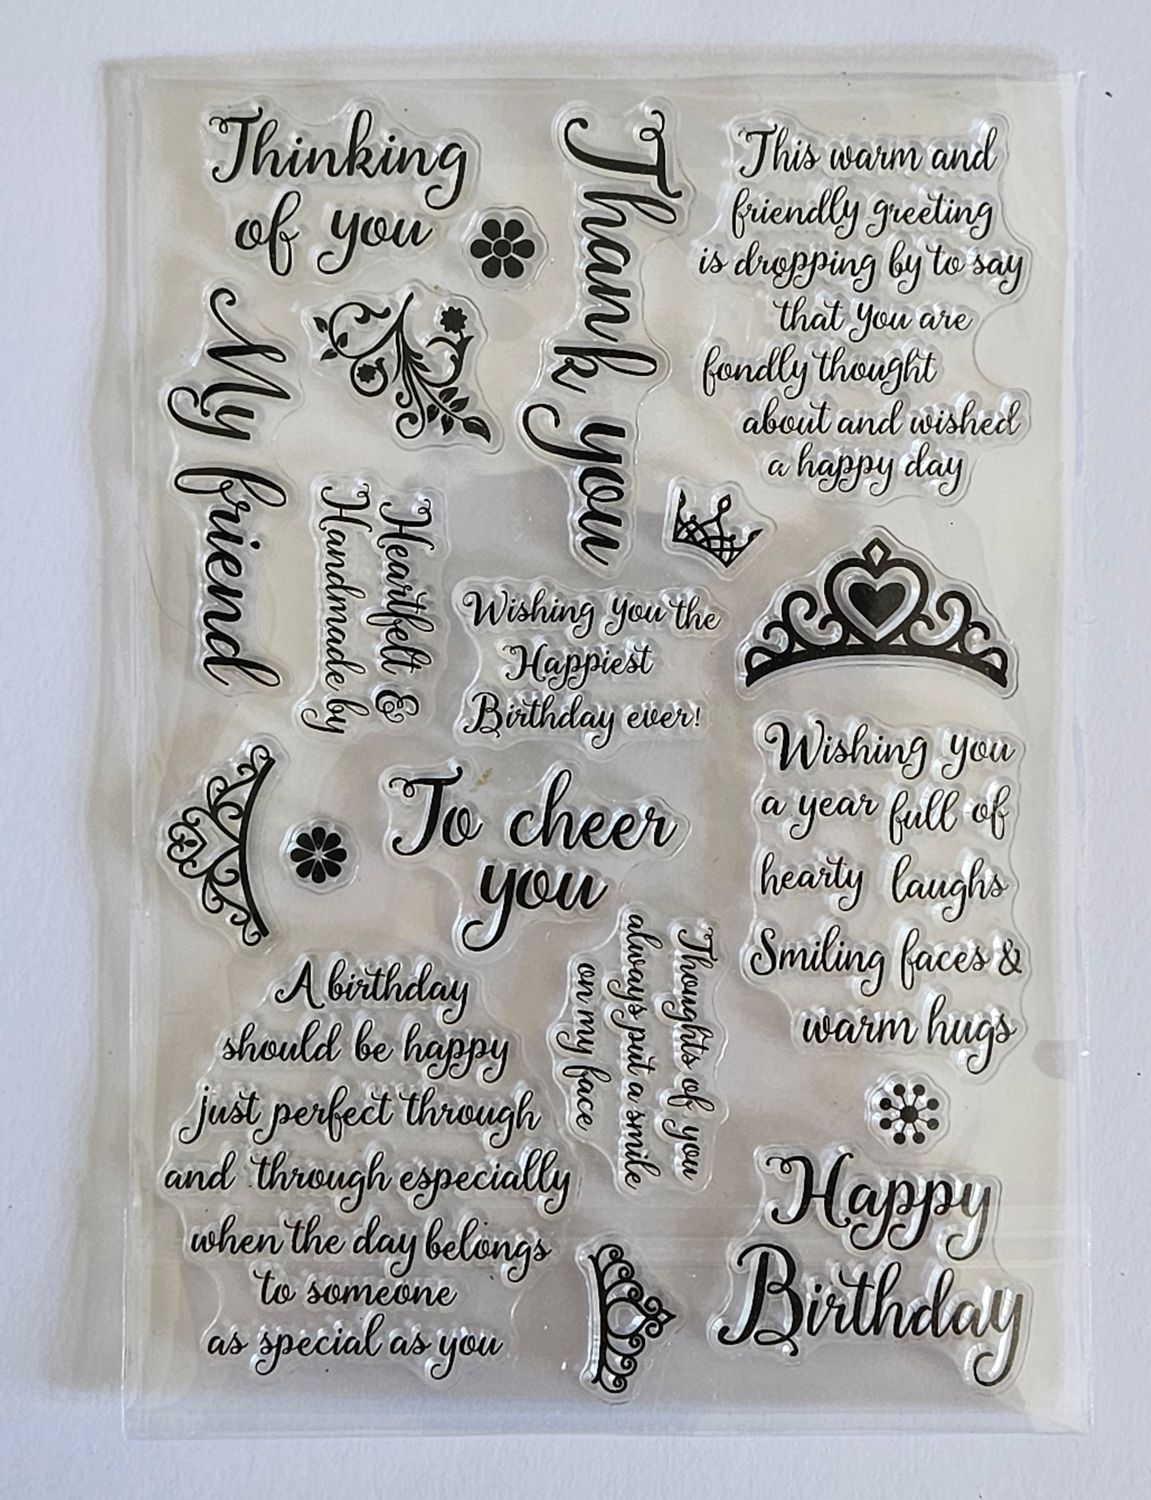 Thinking
of you
Thank you
This warm and
friendly greeting
is dropping by to say
that you are
fondly thought
about and wished
a happy day
My friend
Heartfelt &
Handmade by
Wishing you the
Happiest
Birthday ever!
Wishing you
a year full of
hearty laughs
Smiling faces &
warm hugs
To cheer
you
Thoughts of you
always put a smile
on my face
A birthday
should be happy
just perfect through
and through especially
when the day belongs
to someone
as special as you
Happy
Birthday